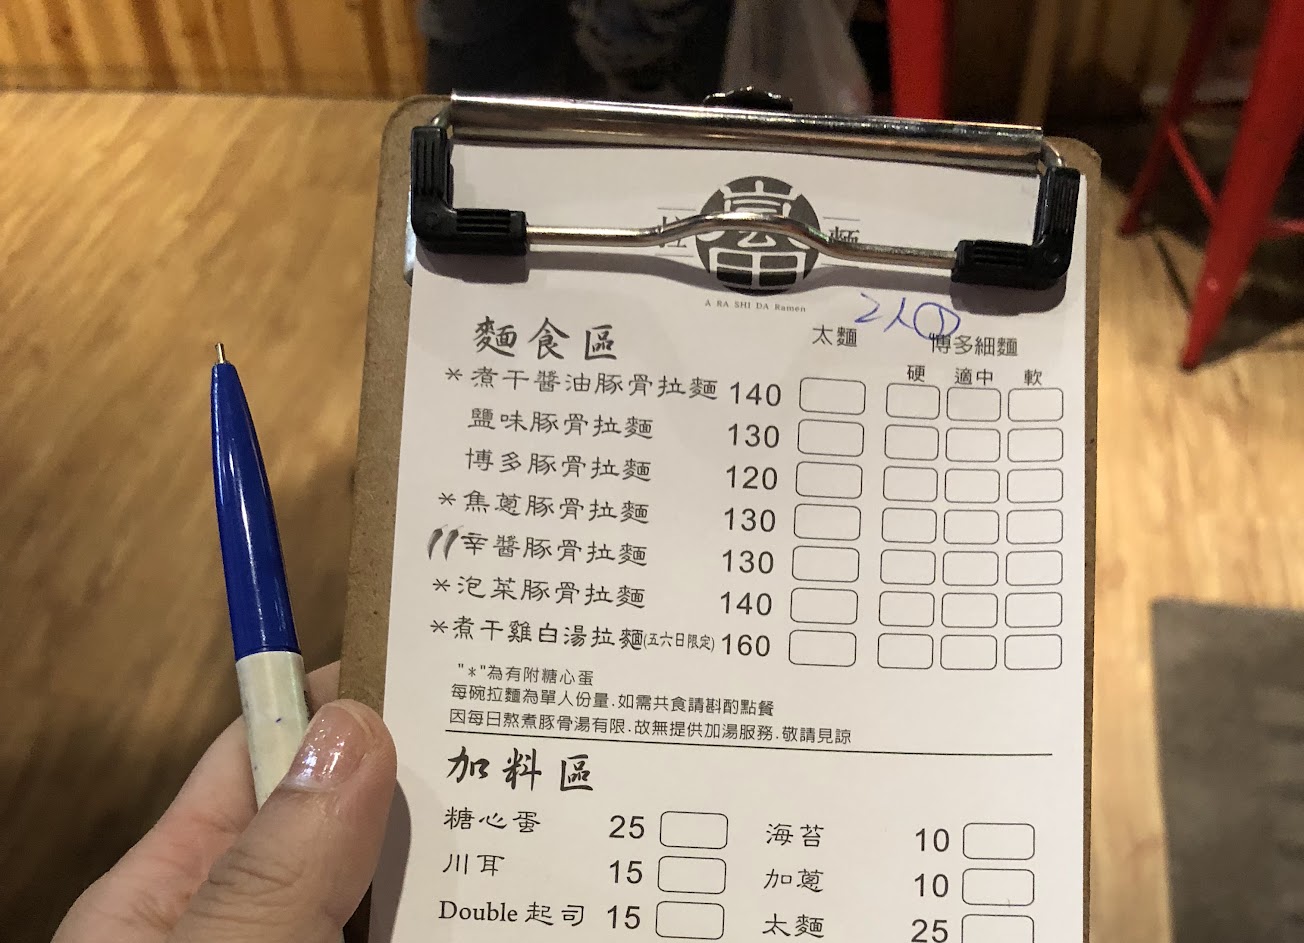 A RA SHI DA Ramen
2人
麵食區 太麵 博多細麵
硬 適中 軟
*煮干醬油豚骨拉麵 140
鹽味豚骨拉麵 130
博多豚骨拉麵 120
*焦蔥豚骨拉麵 130
辛醬豚骨拉麵 130
*泡菜豚骨拉麵 140
*煮干雞白湯拉麵(五六日限定) 160
"*"為有附糖心蛋
每碗拉麵為單人份量.如需共食請斟酌點餐
因每日熬煮豚骨湯有限.故無提供加湯服務.敬請見諒
加料區
糖心蛋 25 海苔 10
川耳 15 加蔥 10
Double起司 15 太麵 25